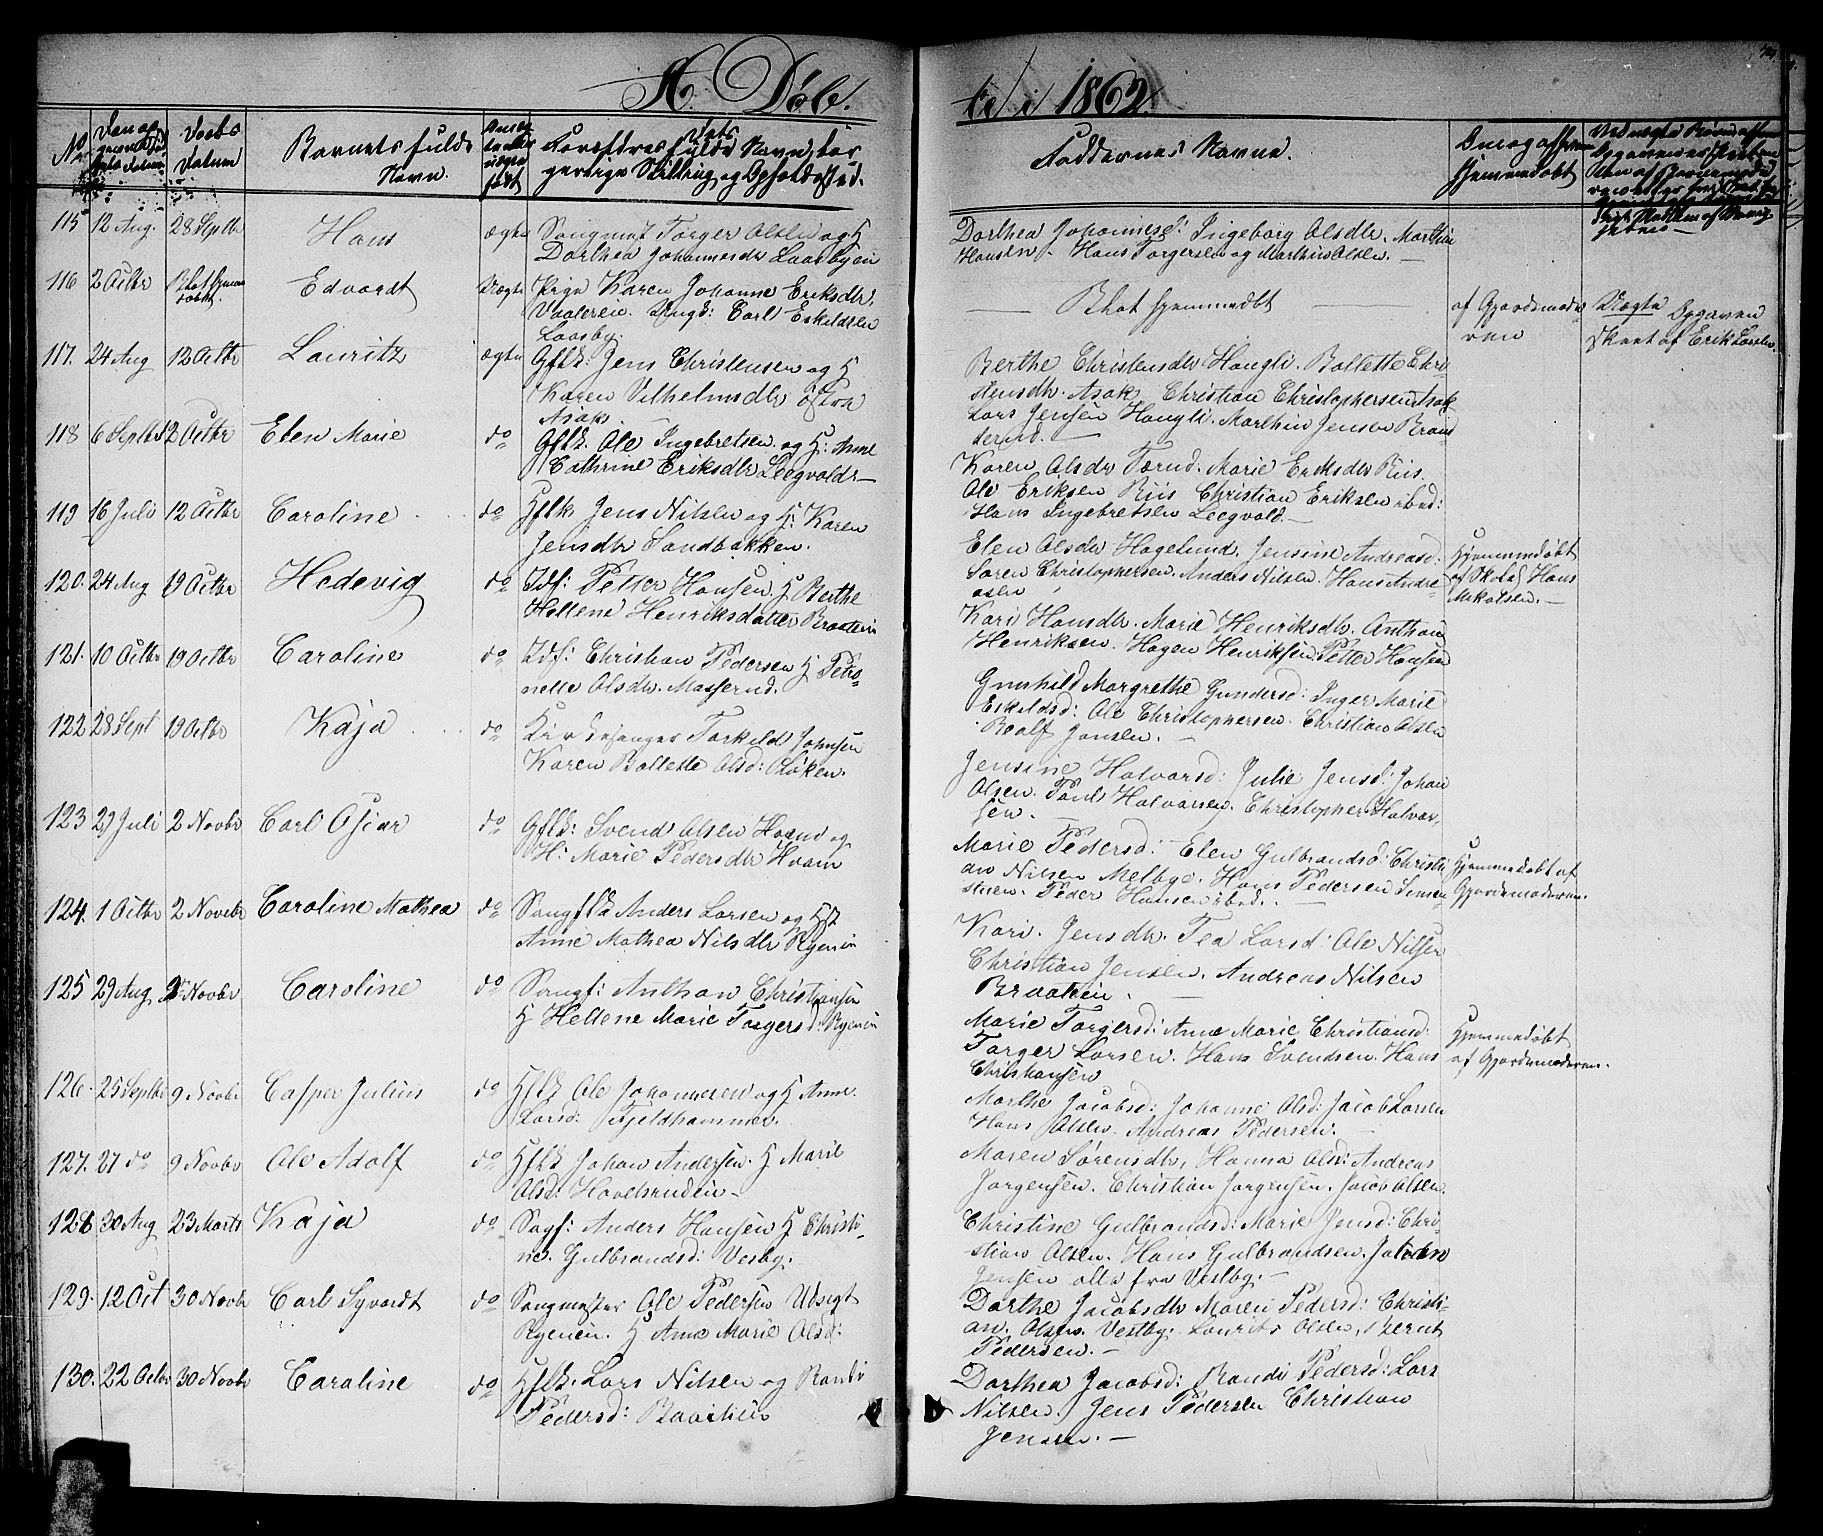 A. Døb.
te i 1862.
No
Barnets fulde
Navn.
Faddernes Navne.
115 12 Aug. 28 Septbr Hans ægte Saugmst Torger Olsen og H
Dorthea Johannesdtr
Dorthea Johannesd: Ingeborg Olsdtr. Marthin
Hansen. Hans Torgersen og Marthin Olsen. —
116 2 Octbr Edvardt Uægte Pige Karen Johanne Eriksdtr.
Vaaleren. Ungk: Carl Eskildsen
Laasby.
Blot hjemmedøbt
af Gjordemode
ren
Uægte Opgaven
skeet af Erik Larsen.
117. 24 Aug 12 Octbr Lauritz ægte Gflk. Jens Christensen og H
Karen Vilhelmsdtr østre
Asak.
Berthe Christensdtr Haugli. Bollette Chri
stensdtr. Asak, Christian Christophersen Asak
Lars Jensen Haugli. Marthin Jensen Braa
terud. —
118 6 Septbr 12 Octbr Elen Marie do Gflk. Ole Ingebretsen og H: Anne
Cathrine Eriksdtr Leegvold —
Karen Olsdtr Tærud. Marie Eriksdtr Riis.
Ole Eriksen Riis Christian Eriksen ibed:
Hans Ingebretsen Leegvold. —
119 16 Juli 12 Octbr Caroline do Hflk Jens Nilsen og H: Karen
Jensdtr Sandbakken.
Elen Olsdtr Hagelund. Jensine Andreasd:
Søren Christophersen. Anders Nilsen. Hans Andre
asen
Hjemmedøbt
af Skolel Hans
Mikalsen. —
120. 24 Aug 19 Octbr Hedevig do Idf: Petter Hansen H Berthe
Hellene Henriksdatter Braaten
Kari Hansdtr. Marie Henriksdtr. Anthon
Henriksen. Hagen Henriksen. Petter Hansen
121. 10 Octbr 19 Octbr Caroline do Idf: Christian Pedersen H Petro-
nelle Olsdtr. Masserud.
Gunhild Margrethe Gundersd: Inger Marie
Eskildsd: Ole Christophersen. Christian Olsen
Roolf Jensen. —
122 28 Sept 19 Octbr Kaja do Kirkesanger Torkild Johnsen
Karen Bollette Olsd: Løken.
Jensine Halvorsd: Julie Jensd: Johan
Olsen. Paul Halvorsen. Christopher Halvor
sen. —
123 29 Juli 2 Novbr Carl Oscar do Gflk: Svend Olsen Hvam og
H: Marie Pedersdtr Hvam
Marie Pedersd: Elen Gulbrandsd: Christi
an Nilsen Melbye. Hans Pedersen Simen
stuen. Peder Hansen ibed. —
Hjemmedøbt af
Gjordemoderen.
124. 1 Octbr 2 Novbr Caroline Mathea do Saugflk Anders Larsen og Hst
Anne Mathea Nilsdtr Ryenin
Kari. Jensdtr. Tea Larsd: Ole Nilsen
Christian Jensen. Andreas Nilsen
Braaten. —
125 29 Aug 2 Novbr Caroline do Saugf: Anthon Christiansen
H Hellene Marie Torgersd: Ryenin
Marie Torgersd: Anne Marie Christiansd:
Torger Larsen. Hans Svendsen. Hans
Christiansen
Hjemmedøbt
af Gjordemoderen.
126. 25 Septbr 9 Novbr Casper Julius do Hflk Ole Johannesen og H Anne
Larsd: Fjeldhammer.
Marthe Jacobsd: Johanne Olsd: Jacob Larsen
Hans Olsen. Andreas Pedersen. —
127. 27 do 9 Novbr Ole Adolf do Hflk Johan Andersen. H Marie
Olsd: Hovelsruden —
Maren Sørensdtr, Hanna Olsd: Andreas
Jørgensen. Christian Jørgensen. Jacob Olsen.
128 30 Aug 23 Marts Kaja do Sagf: Anders Hansen H Christi-
ne. Gulbrandsd: Vesby.
Christine Gulbrandsd: Marie Jensd: Chri-
stian Olsen. Hans Gulbrandsen. Johan
Jensen alle fra Vestby. —
129. 12 Oct 30 Novbr Carl Syvardt do Saugmester Ole Pedersen Udsigt
Ryenin. H Anne Marie Olsd:
Dorthe Jacobsdtr Maren Pedersd: Christi-
an. Olsen. Vestby. Laurits Olsen, Bernt
Pedersen. —
130. 22 Octbr 30 Novbr Caroline do Hflk. Lars Nilsen og Randi
Pedersd: Braaten
Dorthea Jacobsd: Randi Pedersd: Lars
Nilsen. Jens Pedersen Christian
Jensen. —